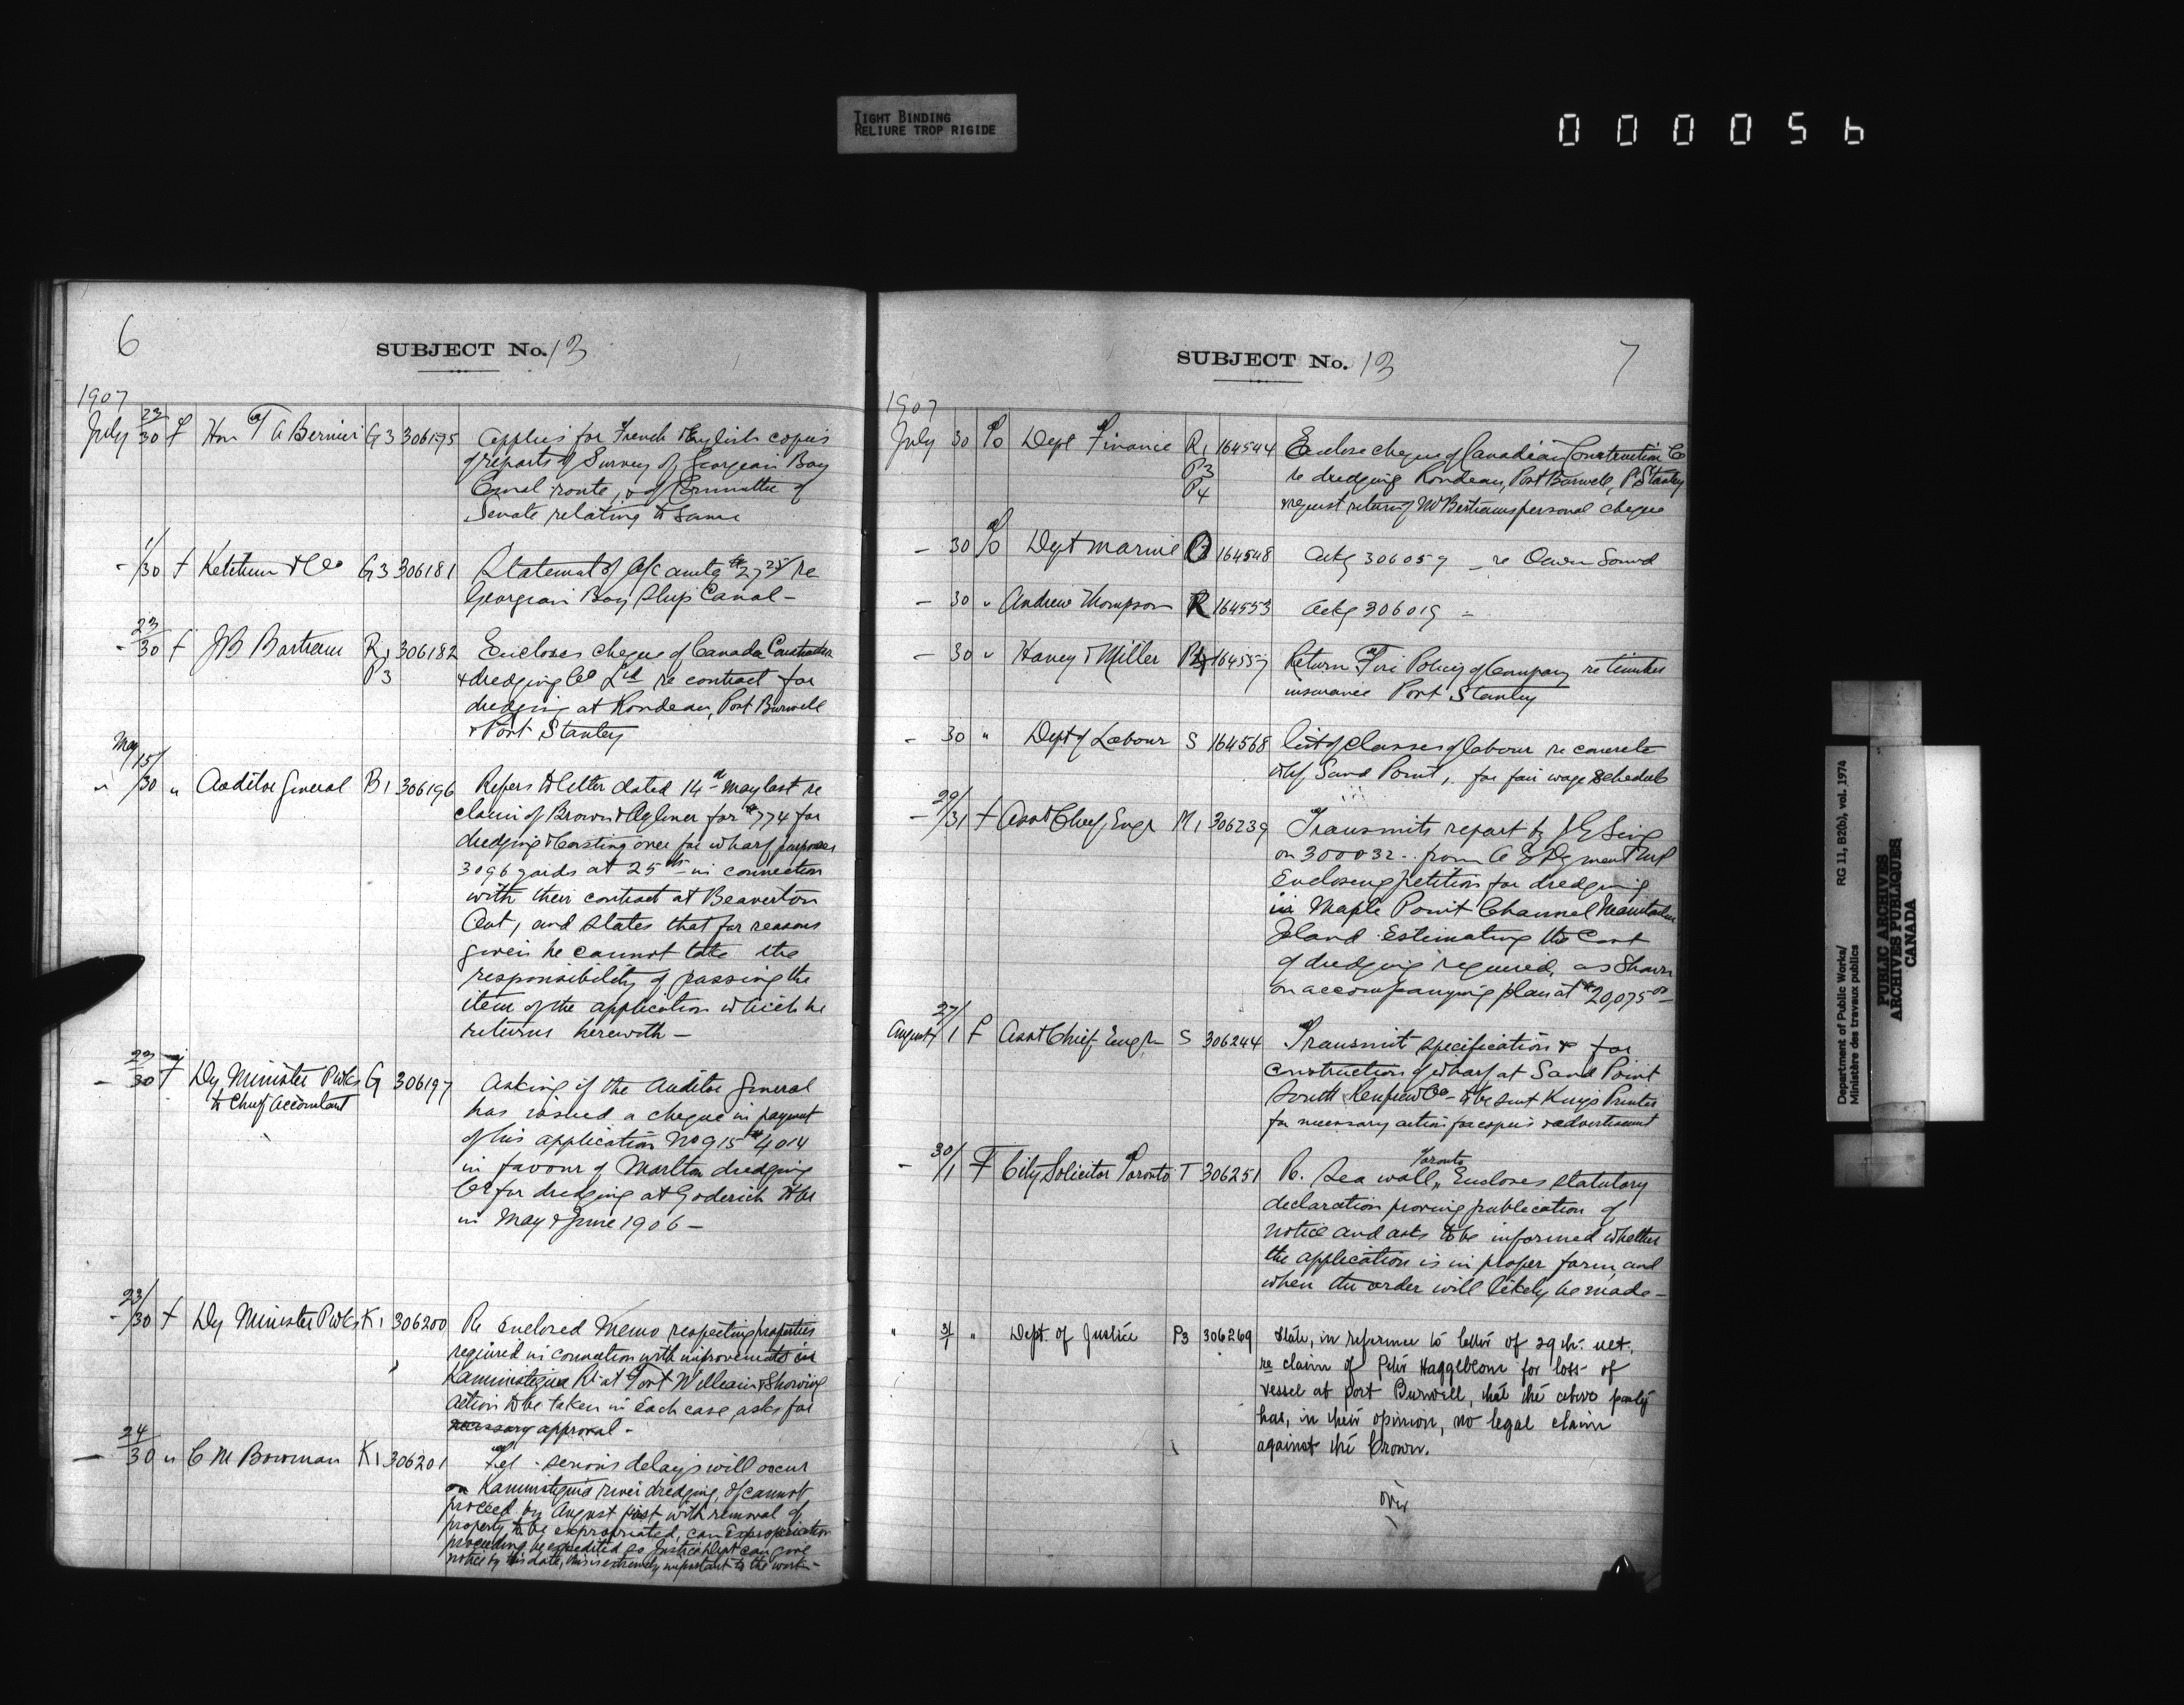 TIGHT BINDING
RELIURE TROP RIGIDE
000056
6
SUBJECT No. 13
1907
July 23/30 F Hon T A Bernier G3 306175 Applies for French & English copies
of reports of Survey of Georgian Bay
Canal route, & of Committee of
Senate relating to same
- 1/30 F Ketchum & Co G3 306181 Statement of A/c amtg $27 25/ re
Georgian Bay Ship Canal -
- 23/30 F J B Bartram R1 306182 Encloses cheque of Canada Construction
P3 & dredging Co Ltd re contract for
dredging at Rondeau, Port Burwell
& Port Stanley
May
" 15/30 " Auditor General B1 306196 Refers to letter dated 14th May last re
claim of Brown & Aylmer for $774 for
dredging & casting over for wharf purposes
3096 yards at 25 cts in connection
with their contract at Beaverton
Ont, and states that for reasons
given he cannot take the
responsibility of passing the
item of the application which he
returns herewith -
- 23/30 F Dy Minister PWks G 306197 Asking if the Auditor General
to Chief Accountant has issued a cheque in payment
of his application No 915 $4014
in favour of Marlton dredging
Co for dredging at Goderich Hbr
in May & June 1906 -
- 23/30 F Dy Minister PWks K1 306200 Re Enclosed Memo respecting properties
required in connection with improvements in
Kaministiquia Rr at Fort William & Showing
action to be taken in each case asks for
necessary approval -
— 24/30 " C M Bowman K1 306201 Tel - serious delays will occur
on Kaministiquia river dredging, if cannot
proceed by August first with removal of
property to be expropriated, can Expropriation
proceeding be expedited so Justice Dept can give
notice by this date, this is extremely important to the work -
SUBJECT No. 13
7
1907
July 30 To Dept Finance R1 164544 Enclose cheque of Canadian Construction Co
P3 re dredging Rondeau, Port Burwell, Pt Stanley
P4 & request return of Mr Bertrams personal cheque
- 30 To Dept Marine 164548 Ackg 306059 - re Owen Sound
- 30 " Andrew Thompson R 164553 Ackg 306019 -
- 30 " Haney & Miller 164557 Return Fire Policy of Company re timber
insurance Port Stanley
- 30 " Dept of Labour S 164568 list of classes of labour re concrete
whf Sand Point, for fair wage schedule
- 29/31 F Asst Chief Engr M1 306239 Transmits report by J G Sing
on 300032 - from A E Dyment MP
Enclosing petition for dredging
in Maple Point Channel Manitoulin
Island - Estimating the Cost
of dredging required, as shown
on accompanying plan at $20,075 00 -
August 27/1 F Asst Chief Engr S 306244 Transmit specification & for
construction of wharf at Sand Point
South Renfrew Co - to be sent Kings Printer
for necessary action for copies & advertisement
- 30/1 F City Solicitor Toronto T 306251 R. Sea wall, Toronto Encloses statutory
declaration proving publication of
notice and asks to be informed whether
the application is in proper form, and
when the order will likely be made -
" 31/1 " Dept. of Justice P3 306269 State, in reference to letter of 29th. ult.
re claim of Peter Haggblom for loss of
vessel at port Burwell, that the above party
has, in their opinion, no legal claim
against the Crown.
over
Department of Public Works/
Ministère des travaux publics
RG 11, B2(b), vol. 1974
PUBLIC ARCHIVES
ARCHIVES PUBLIQUES
CANADA